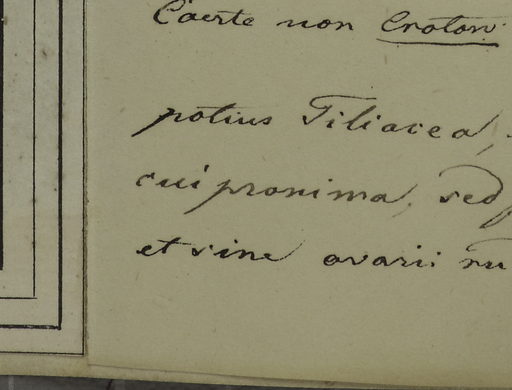 Certe non Croton
potius Tiliacea,
cui pronima, sed
et sine ovarii nu